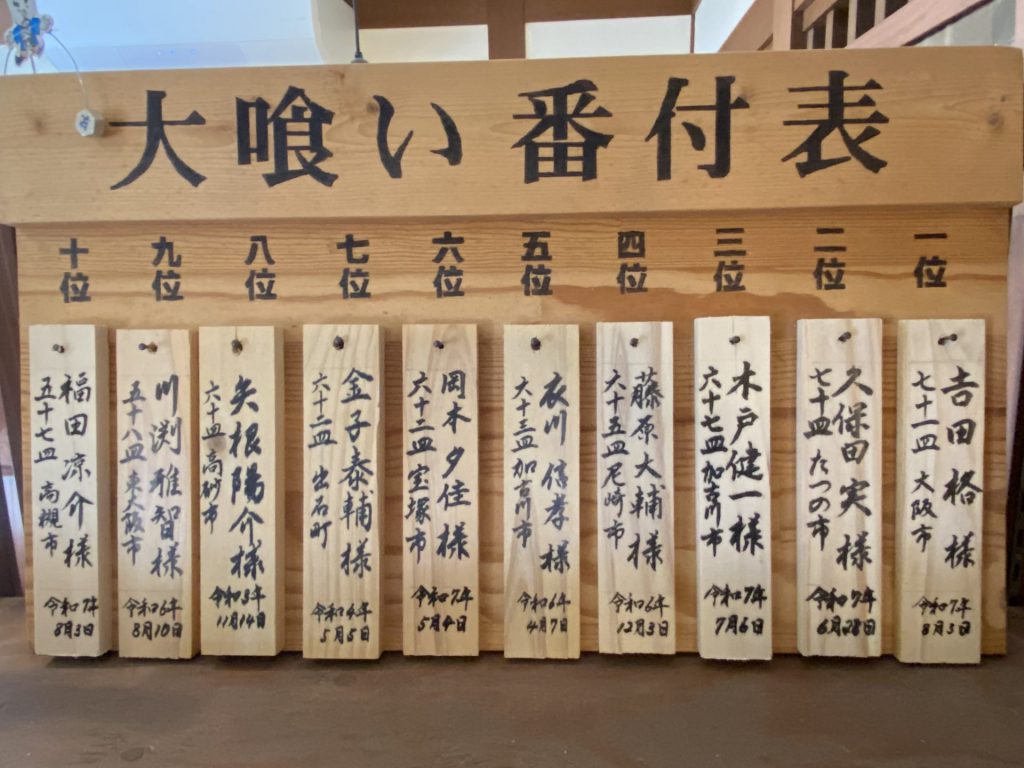 大喰い番付表
一位
吉田格様
七十一皿 大阪市
令和7年
8月3日
二位
久保田実様
七十皿 たつの市
令和7年
6月28日
三位
木戸健一様
六十七皿 加古川市
令和7年
7月6日
四位
藤原大輔様
六十五皿 尼崎市
令和6年
12月3日
五位
衣川信孝様
六十三皿 加古川市
令和6年
4月7日
六位
岡本夕佳様
六十三皿 宝塚市
令和7年
5月4日
七位
金子泰輔様
六十二皿 出石町
令和4年
5月5日
八位
矢根陽介様
六十皿 高砂市
令和3年
11月14日
九位
川渕雅智様
五十八皿 東大阪市
令和6年
8月10日
十位
福田涼介様
五十七皿 高槻市
令和7年
8月3日